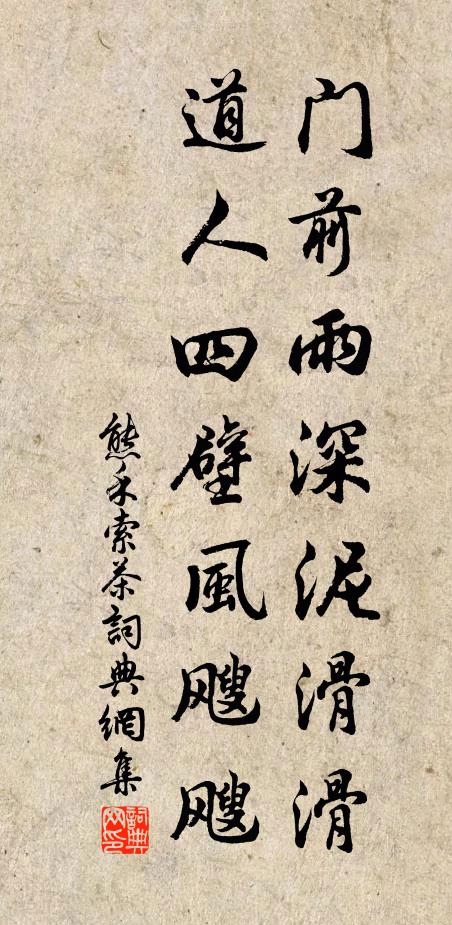 门前雨深泥滑滑
道人四壁風颼颼
熊禾索茶詞典網集
詞典網印